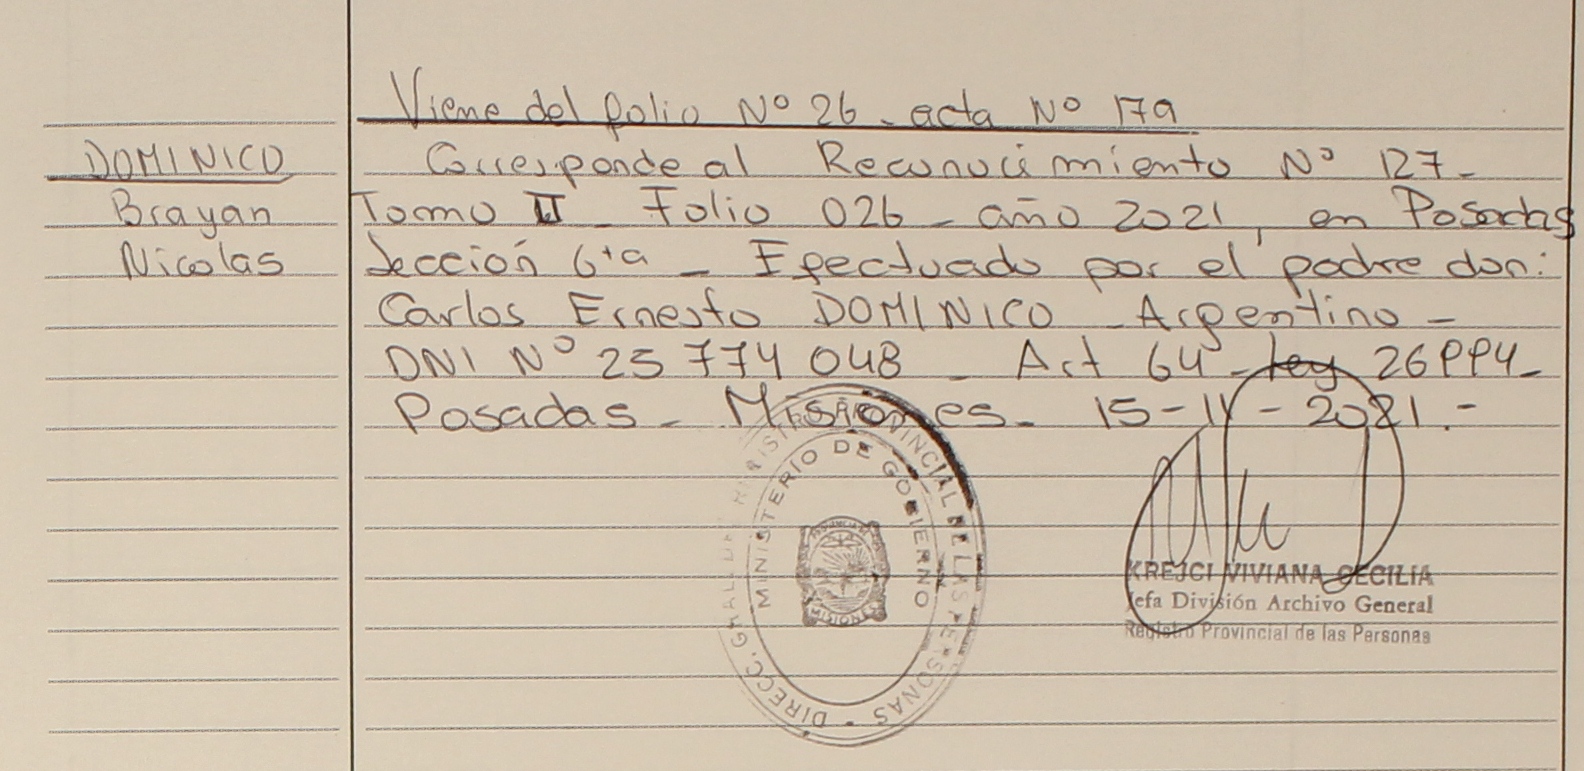 Viene del folio Nº 26 - acta Nº 179
DOMINICO
Brayan
Nicolas
Corresponde al Reconocimiento Nº 127-
Tomo II - Folio 026 - año 2021, en Posadas
Sección 6ta - Efectuado por el padre don:
Carlos Ernesto DOMINICO - Argentino -
DNI Nº 25 774 048 - Art 64 - ley 26994-
Posadas - Misiones - 15-11-2021.-
DIRECC. GRAL. DEL REGISTRO PROVINCIAL DE LAS PERSONAS
MINISTERIO DE GOBIERNO
MISIONES
KREJCI VIVIANA CECILIA
Jefa División Archivo General
Registro Provincial de las Personas